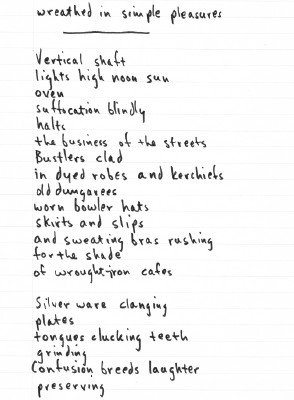 wreathed in simple pleasures
Vertical shaft
lights high noon sun
oven
suffocation blindly
halts
the business of the streets
Bustlers clad
in dyed robes and kerchiefs
old dungarees
worn bowler hats
skirts and slips
and sweating bras rushing
for the shade
of wrought-iron cafes
Silver ware clanging
plates
tongues clucking teeth
grinding
Confusion breeds laughter
preserving